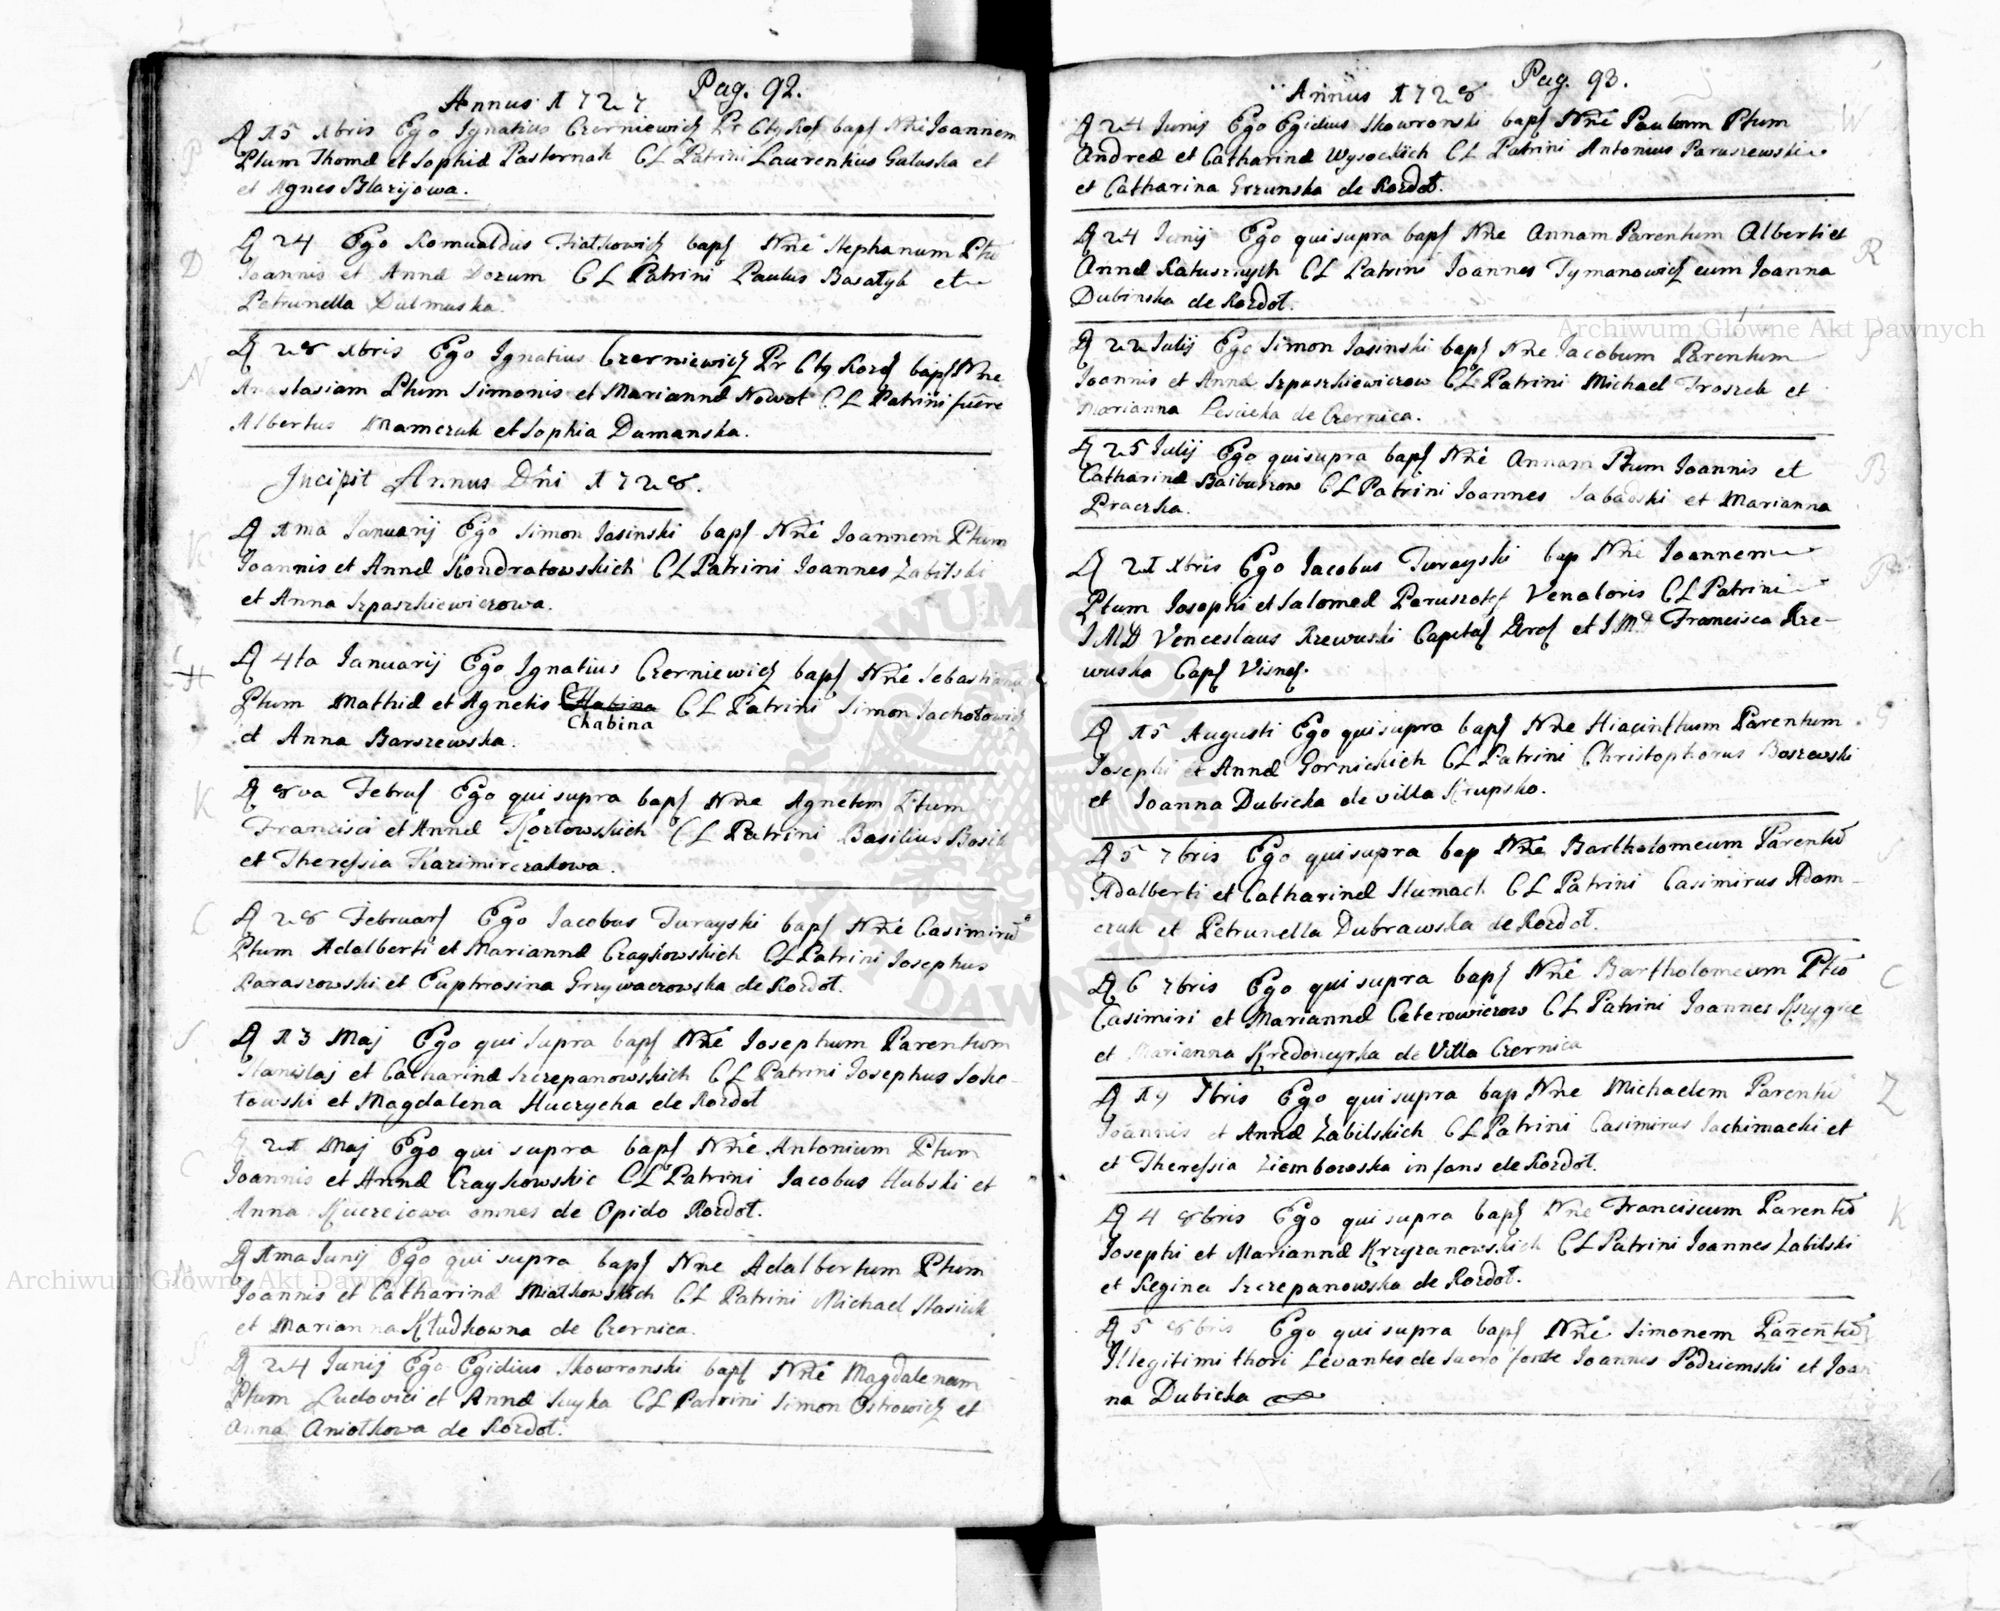 Pag. 92.
Annus 1727
P
D 15 Xbris Ego Ignatius Czerniewicz Pr Ctg Rof bapt Nne Joannem
Ptum Thomæ et Sophiæ Pasternak CL Patrini Laurentius Galuska et
et Agnes Blazijowa.
D
D 24 Ego Romualdus Fiatkowicz bapt Nne Stephanum Ptu
Joannis et Annæ Dozum CL Patrini Paulus Basatyk et
Petrunella Dulmuska.
N
D 28 Xbris Ego Ignatius Czerniewicz Pr Ctg Rozd bapt Nne
Anastasiam Ptum Simonis et Mariannæ Nowot CL Patrini fuere
Albertus Mamczuk et Sophia Dumanska.
Incipit Annus Dni 1728.
K
D 1ma Januarij Ego Simon Jasinski bapt Nne Joannem Ptum
Joannis et Annæ Kondratowskich CL Patrini Joannes Zabilski
et Anna Szpaszkiewiczowa.
H
D 4ta Januarij Ego Ignatius Czerniewicz bapt Nne Sebastianu
Ptum Mathiæ et Agnetis Habina CL Patrini Simon Jachotowicz
Chabina
et Anna Barszewska.
K
D 8va Februs Ego qui supra bapt Nne Agnetem Ptum
Francisci et Annæ Kozłowskich CL Patrini Basilius Bosik
et Theressia Kazimirczakowa.
C
D 28 Februars Ego Jacobus Turayski bapt Nne Casimirū
Ptum Adalberti et Mariannæ Czaykowskich CL Patrini Josephus
Paraszowski et Euphrosina Grzywaczowska de Rozdoł.
S
D 13 Maj Ego qui supra bapt Nne Josephum Parentum
Stanislaj et Catharinæ Szczepanowskich CL Patrini Josephus Soko-
towski et Magdalena Huczycha de Rozdoł
C
D 21 Maj Ego qui supra bapt Nne Antonium Ptum
Joannis et Annæ Czaykowskic CL Patrini Jacobus Hubski et
Anna Kuczeiowa omnes de Opido Rozdoł.
D 1ma Junij Ego qui supra bapt Nne Adalbertum Ptum
Joannis et Catharinæ Miatkowskich CL Patrini Michael Stasiuk
et Marianna Kłudkowna de Czernica.
D 24 Junij Ego Egidius Skowronski bapt Nne Magdalenam
Ptum Ludovici et Annæ Suyka CL Patrini Simon Ostrowicz et
Anna Aniotkowa de Rozdoł.
Pag. 93.
Annus 1728
W
D 24 Junij Ego Egidius Skowronski bapt Nne Paulum Ptum
Andreæ et Catharinæ Wysockich CL Patrini Antonius Paruszewski
et Catharina Grzunska de Rozdoł.
R
D 24 Junij Ego qui supra bapt Nne Annam Parentum Alberti et
Annæ Ratusznych CL Patrini Joannes Tymanowicz cum Joanna
Dubinska de Rozdoł.
S
D 22 Julij Ego Simon Jasinski bapt Nne Jacobum Parentum
Joannis et Annæ Szpaszkiewiczow CL Patrini Michael Troszek et
Marianna Lesicka de Czernica.
B
D 25 Julij Ego qui supra bapt Nne Annam Ptum Joannis et
Catharinæ Baibuzow CL Patrini Joannes Sabadski et Marianna
Praczka.
P
D 21 Xbris Ego Jacobus Turayski bap Nne Joannem
Ptum Josephi et Salomeæ Paruszotes Venatoris CL Patrini
I M D Venceslaus Rzewuski Capitas Drof et I Md Francisca Rze-
wuska Capt Visnes.
G
D 15 Augusti Ego qui supra bapt Nne Hiacinthum Parentum
Josephi et Annæ Gornickich CL Patrini Christophorus Boszewski
et Joanna Dubicka de villa Krupsko.
S
D 5 7bris Ego qui supra bap Nne Bartholomeum Parentū
Adalberti et Catharinæ Stumach CL Patrini Casimirus Adam-
czuk et Petrunella Dubrawska de Rozdoł.
C
D 6 7bris Ego qui supra bapt Nne Bartholomeum Ptū
Casimiri et Mariannæ Ceterowiczow CL Patrini Joannes Krzygiec
et Marianna Kredencyrka de Villa Czernica
Z
D 19 7bris Ego qui supra bap Nne Michaelem Parentū
Joannis et Annæ Zabilskich CL Patrini Casimirus Jachimacki et
et Theressia Ziemboroska in fans de Rozdoł.
K
D 4 8bris Ego qui supra bapt Nne Franciscum Parentū
Josephi et Mariannæ Krzyzanowskich CL Patrini Joannes Zabilski
et Regina Szczepanowska de Rozdoł.
D 5 8bris Ego qui supra bapt Nne Simonem Parentū
Illegitimi thori Levantes de Sacro fonte Joannes Podziemski et Joan
na Dubicka
Archiwum Główne Akt Dawnych
Archiwum Główne Akt Dawnych
ARCHIWUM GŁÓWNE AKT DAWNYCH